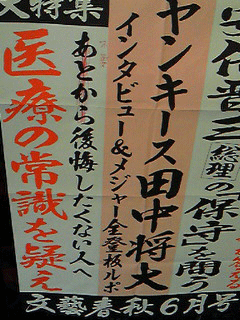 安倍晋三「総理の保守」を問う
ヤンキース田中将大
インタビュー&メジャー全登板ルポ
あとから後悔したくない人へ
医療の常識を疑え
大特集
文藝春秋6月号